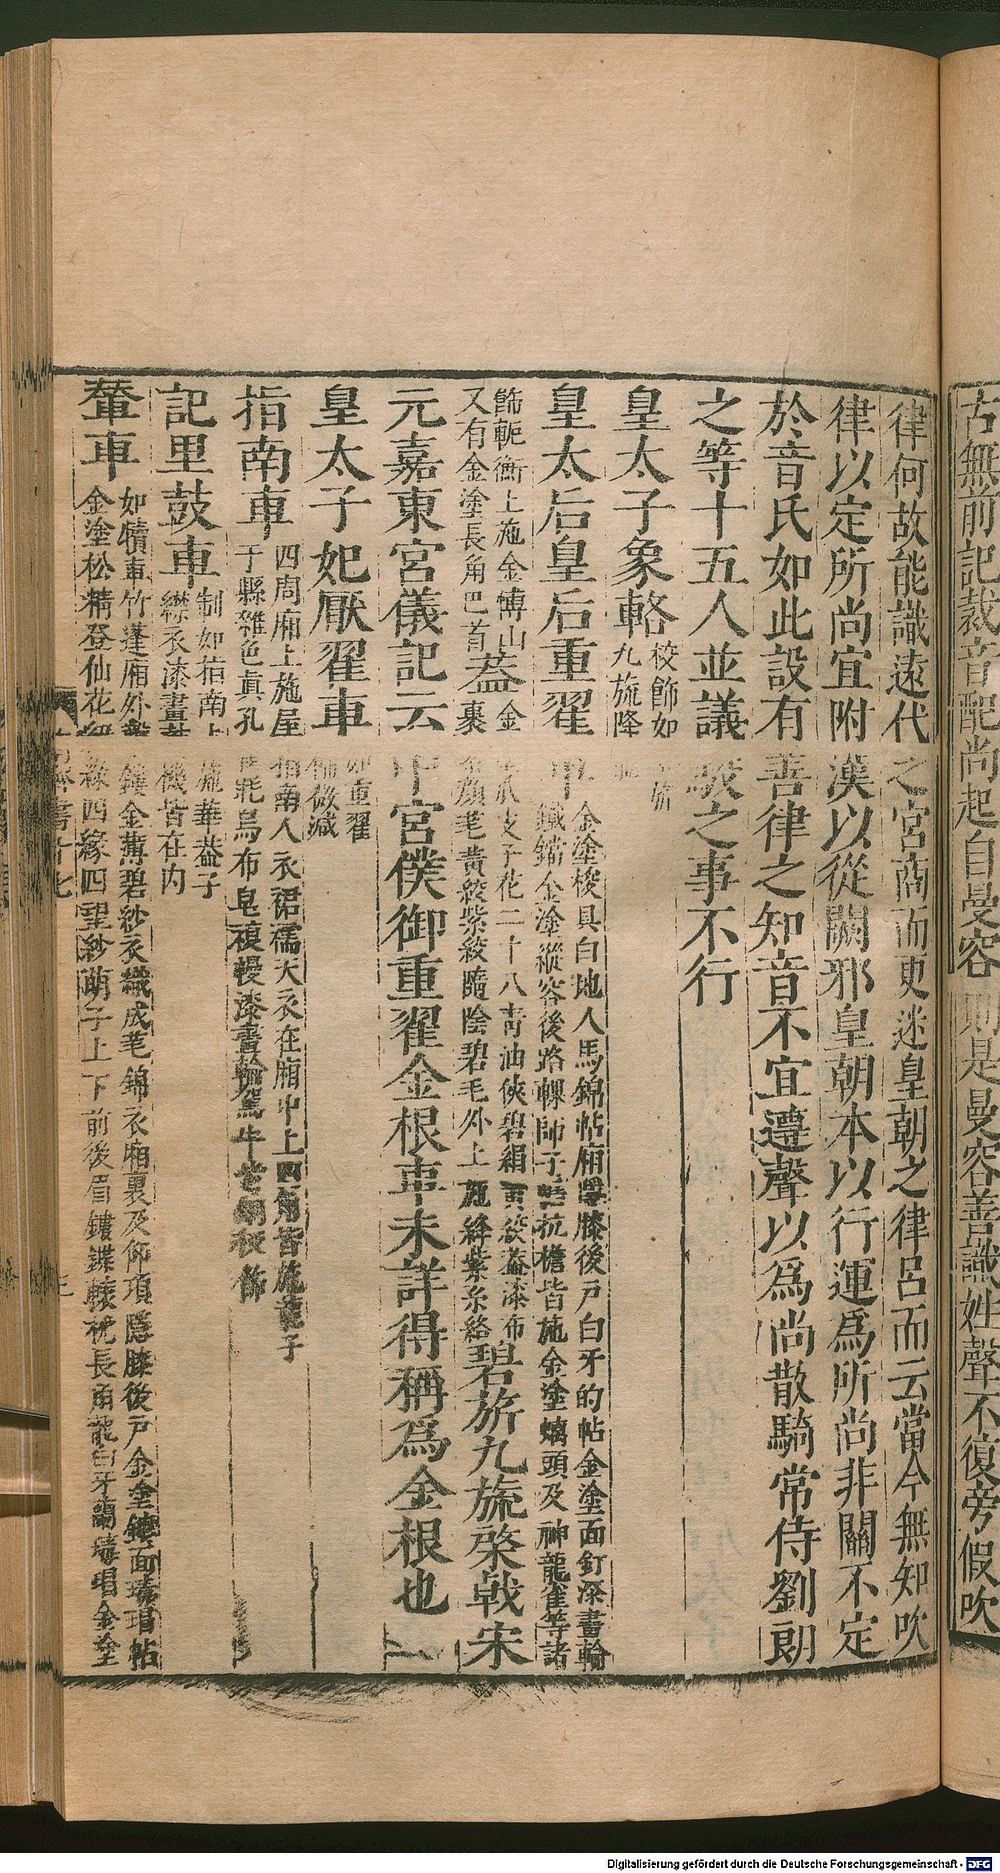 古無前記裁音配尚起自曼容則是曼容善識姓聲不復旁假吹
律何故能識遠代之宮商而更迷皇朝之律呂而云當今無知吹
律以定所尚宜附漢以從闕邪皇朝本以行運爲所尚非關不定
於音氏如此設有善律之知音不宜遵聲以爲尚散騎常侍劉朗
之等十五人並議駮之事不行
皇太子象輅校飾如
九旒降
皇太后皇后重翟車金塗校具白地人馬錦帖廂隱膝後戸白牙的帖金塗面釘漆畫輪
鐵鐊金塗縱容後路轊師子轄抗檐皆施金塗螭頭及神龍雀等諸
飾軛衡上施金博山又有金塗長角巴首蓋金
裹
爪支子花二十八青油俠碧絹黃絞蓋漆布
顔芼黃絞紫絞隨陰碧毛外上施絳紫糸絡碧旂九旒棨戟宋
元嘉東宮儀記云中宮僕御重翟金根車未詳得稱爲金根也
皇太子妃厭翟車如重翟
飾微減
指南車四周廂上施屋指南人衣裙襦天衣在廂中上四角皆施龍子
干縣雜色眞孔
毦烏布皁複幔漆畫輪駕牛
記里鼓車制如指南上施華蓋子
繖衣漆畫鼓機皆在內
輦車如犢車竹蓬廂外鑿鏤金薄碧紗衣織成芼錦衣廂裏及仰項隱膝後戸金塗鏤面瑇瑁帖
金塗松精登仙花紐綠四緣四望紗萌子上下前後眉鏤鍱轅枕長角龍白牙蘭瑇瑁金塗
Digitalisierung gefördert durch die Deutsche Forschungsgemeinschaft - DFG